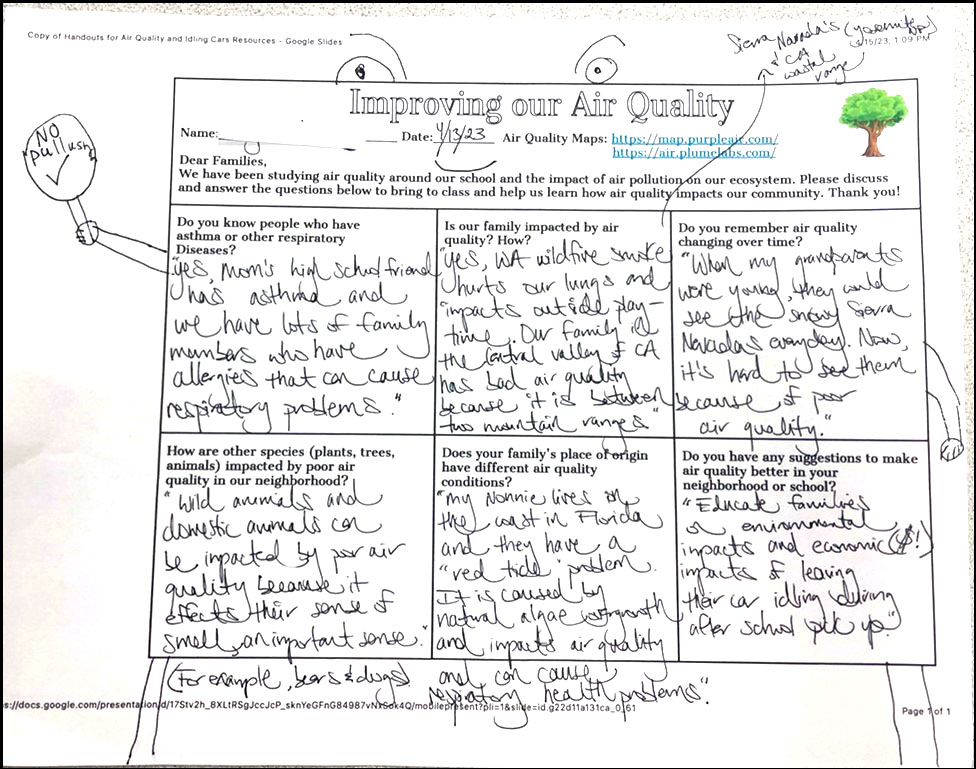 Copy of Handouts for Air Quality and Idling Cars Resources - Google Slides
Sierra Nevada's (Yosemite NP)
& CA
coastal
range
4/15/23, 1:09 PM
Improving our Air Quality
NO
pullushn
Name:
Date: 4/13/23
Air Quality Maps: https://map.purpleair.com/
https://air.plumelabs.com/
Dear Families,
We have been studying air quality around our school and the impact of air pollution on our ecosystem. Please discuss
and answer the questions below to bring to class and help us learn how air quality impacts our community. Thank you!
Do you know people who have
asthma or other respiratory
Diseases?
"yes, Mom's high school friend
has asthma and
we have lots of family
members who have
allergies that can cause
respiratory problems."
Is our family impacted by air
quality? How?
"Yes, WA wildfire smoke
hurts our lungs and
impacts outside play-
time. Our family in
the Central valley of CA
has bad air quality
because it is between
two mountain ranges"
Do you remember air quality
changing over time?
"When my grandparents
were young, they could
see the snowy Sierra
Nevadas everyday. Now,
it's hard to see them
because of poor
air quality."
How are other species (plants, trees,
animals) impacted by poor air
quality in our neighborhood?
"Wild animals and
domestic animals can
be impacted by poor air
quality because it
effects their sense of
smell, an important sense."
(For example, bears & dogs)
Does your family's place of origin
have different air quality
conditions?
"my Nonnie lives on
the coast in Florida
and they have a
"red tide" problem.
It is caused by
natural algae overgrowth
and impacts air quality
and can cause
respiratory health problems".
Do you have any suggestions to make
air quality better in your
neighborhood or school?
"Educate families
on environmental
impacts and economic ($!)
impacts of leaving
their car idling during
after school pick up."
s://docs.google.com/presentation/d/17Stv2h_8XLtRSgJccJcP_sknYeGFnG84987vNxSdk4Q/mobilepresent?pli=1&slide=id.g22d11a131ca_0_61
Page 1 of 1